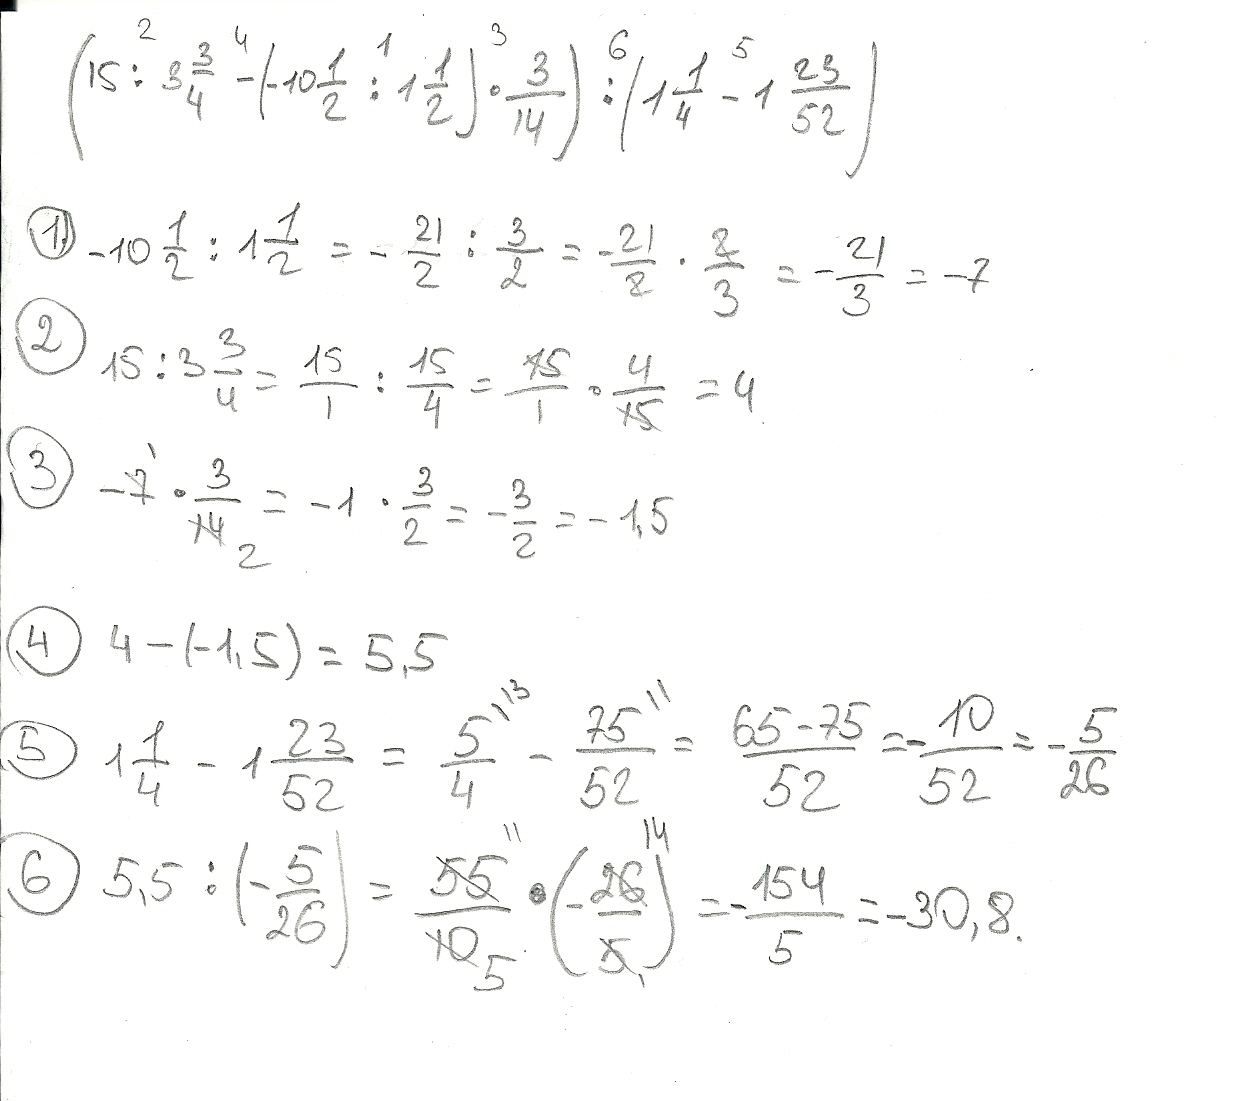 (15 : 3 3/4 - (-10 1/2 : 1 1/2) · 3/14) : (1 1/4 - 1 23/52)
2 4 1 3 6 5
1. -10 1/2 : 1 1/2 = - 21/2 : 3/2 = - 21/2 · 2/3 = - 21/3 = -7
2 15 : 3 3/4 = 15/1 : 15/4 = 15/1 · 4/15 = 4
3 -7 · 3/14 = -1 · 3/2 = - 3/2 = - 1,5
4 4 - (-1,5) = 5,5
5 1 1/4 - 1 23/52 = 5/4 \13 - 75/52 \1 = 65-75/52 = - 10/52 = - 5/26
6 5,5 : (- 5/26) = 55/10 11 5 · (- 26/5) 14 1 = - 154/5 = -30,8.